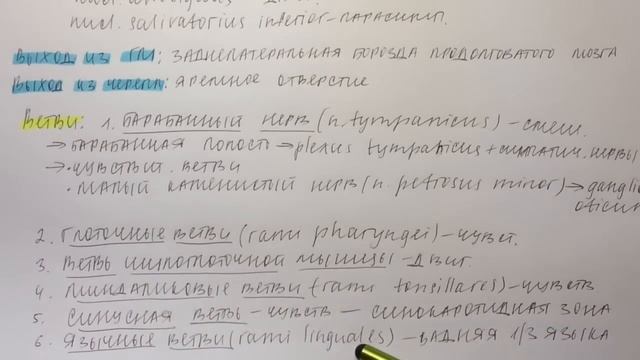 nucl. salivatorius inferior - парасимп.
Выход из ГМ: заднелатеральная борозда продолговатого мозга
Выход из черепа: яремное отверстие
Ветви: 1. Барабанный нерв (n. tympanicus) - смеш.
→ барабанная полость → plexus tympanicus + симпатич. нервы
→ • чувствит. ветви
• малый каменистый нерв (n. petrosus minor) → ganglio
oticum
2. Глоточные ветви (rami pharyngei) - чувст.
3. Ветвь шилоглоточной мышцы - двиг.
4. Миндаликовые ветви (rami tonsillares) - чувств
5. Синусная ветвь - чувств - синокаротидная зона
6. Язычные ветви (rami linguales) - задняя 1/3 языка